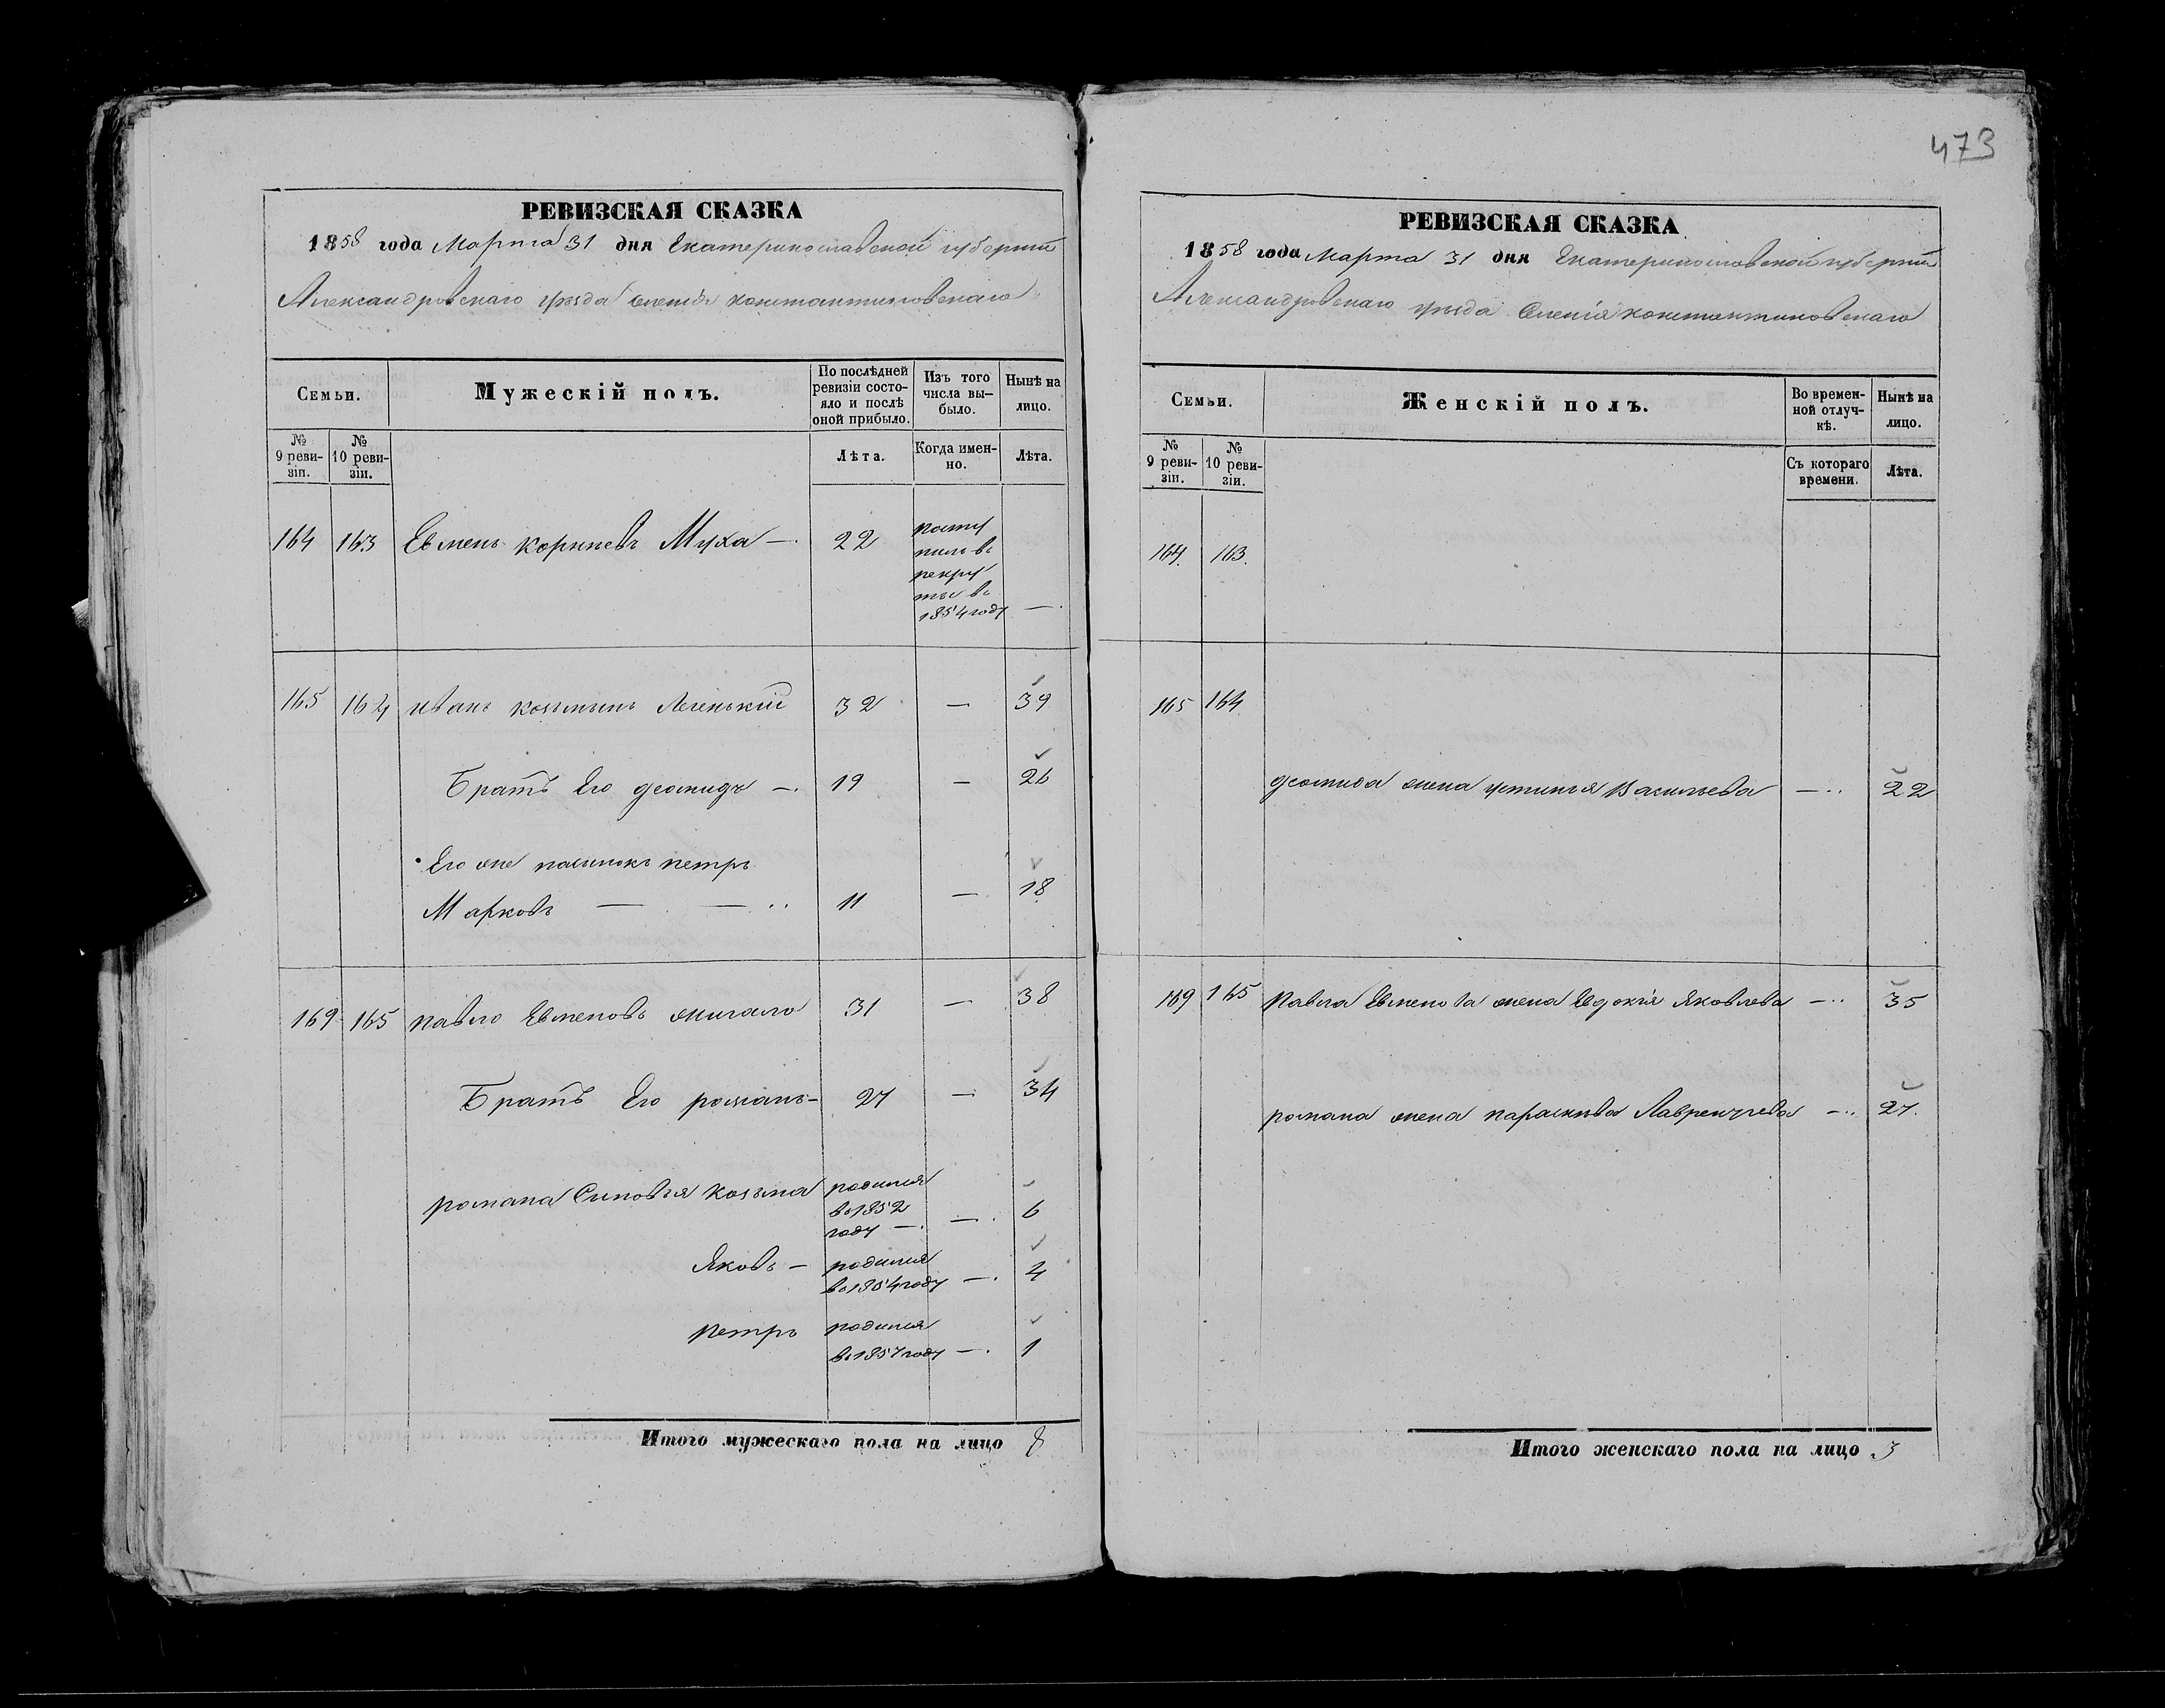 473
РЕВИЗСКАЯ СКАЗКА
1858 года Марта 31 дня Екатеринославской губернии
Александровскаго уѣзда селенія константиновскаго
Семьи.
Мужескій полъ.
По послѣдней ревизіи состояло и послѣ оной прибыло.
Изъ того числа выбыло.
Нынѣ на лицо.
№ 9 ревизіи.
№ 10 ревизіи.
Лѣта.
Когда именно.
Лѣта.
164 163 Евменъ корнѣевъ Муха — 22
посту
пилъ въ
рекру
ты въ
1854 году —
165 164 иванъ козьминъ Легенькій 32 — 39
Братъ Его деомидъ — 19 — 26
Его же пасинокъ петръ
Марковъ — — 11 — 18
169 165 павло Евменовъ жигало 31 — 38
Братъ Его романъ — 27 — 34
романа Синовья козьма родился
въ 1852
году — — 6
Яковъ — родился
въ 1854 году — 4
петръ родился
въ 1857 году — 1
Итого мужескаго пола на лицо 8
РЕВИЗСКАЯ СКАЗКА
1858 года Марта 31 дня Екатеринославской губерніи
Александровскаго уѣзда Селенія константиновскаго
Семьи.
Женскій полъ.
Во временной отлучкѣ.
Нынѣ на лицо.
№ 9 ревизіи.
№ 10 ревизіи.
Съ котораго времени.
Лѣта.
164. 163.
165 164
деомида жена устинья Васильева — 22
169 165 Павла Евменова жена Евдокія Яковлева — 35
романа жена параскива Лаврентьева — 27.
Итого женскаго пола на лицо 3